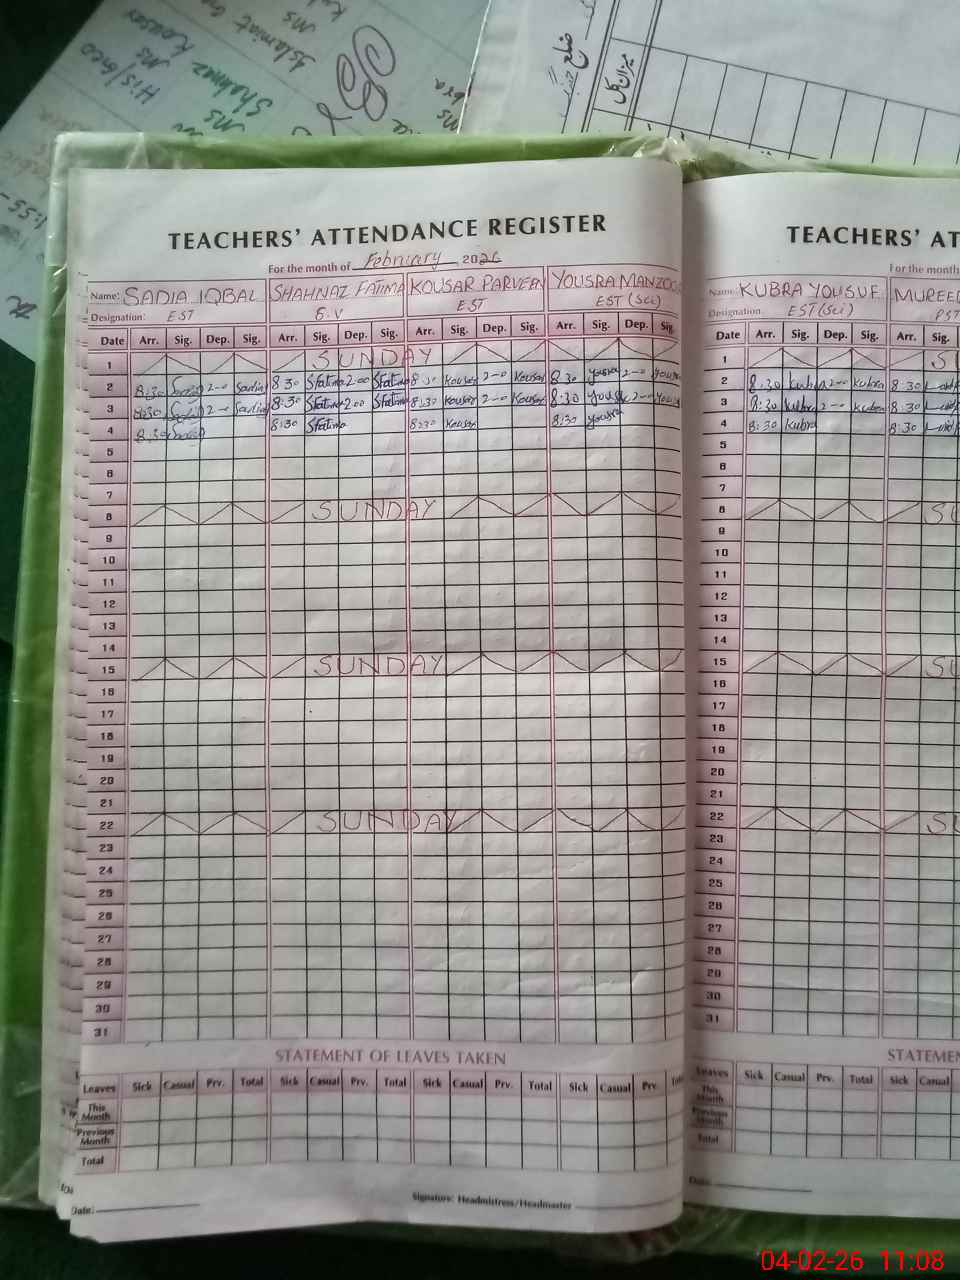 Islamiat
Ms
Kousar
Ms
Shahnaz
Ms
His/Geo
1:55-
ضلع
میزان کل
TEACHERS' ATTENDANCE REGISTER
For the month of February 2026
Name: SADIA IQBAL SHAHNAZ FATIMA KOUSAR PARVEEN YOUSRA MANZOO
Designation: EST S.V EST EST (Sci)
Date Arr. Sig. Dep. Sig. Arr. Sig. Dep. Sig. Arr. Sig. Dep. Sig. Arr. Sig. Dep. Sig.
1 SUNDAY
2 8:30 Sadia 2-0 Sadia 8 30 Sfatima 2-00 Sfatima 8 30 Kousar 2-0 Kousar 8 30 yousra 2-0 yousra
3 8:30 Sadia 2-0 Sadia 8:30 Sfatima 200 Sfatima 8:30 Kousar 2-0 Kousar 8:30 yousra 2-0 yousra
4 8:30 Sadia 8:30 Sfatima 8:30 Kousar 8:30 yousra
5
6
7
8 SUNDAY
9
10
11
12
13
14
15 SUNDAY
16
17
18
19
20
21
22 SUNDAY
23
24
25
26
27
28
29
30
31
STATEMENT OF LEAVES TAKEN
Leaves Sick Casual Prv. Total Sick Casual Prv. Total Sick Casual Prv. Total Sick Casual Prv. Total
This Month
Previous Month
Total
Date:
Signature: Headmistress/Headmaster
TEACHERS' AT
For the month
Name: KUBRA YOUSUF MUREED
Designation: EST (Sci) PST
Date Arr. Sig. Dep. Sig. Arr. Sig.
1 S
2 8:30 Kubra 2-0 Kubra 8 30
3 8:30 Kubra 2-0 Kubra 8:30
4 8:30 Kubra 8:30
5
6
7
8 SU
9
10
11
12
13
14
15 SU
16
17
18
19
20
21
22 SU
23
24
25
26
27
28
29
30
31
STATEMEN
Leaves Sick Casual Prv. Total Sick Casual
This Month
Previous Month
Total
Date:
04-02-26 11:08